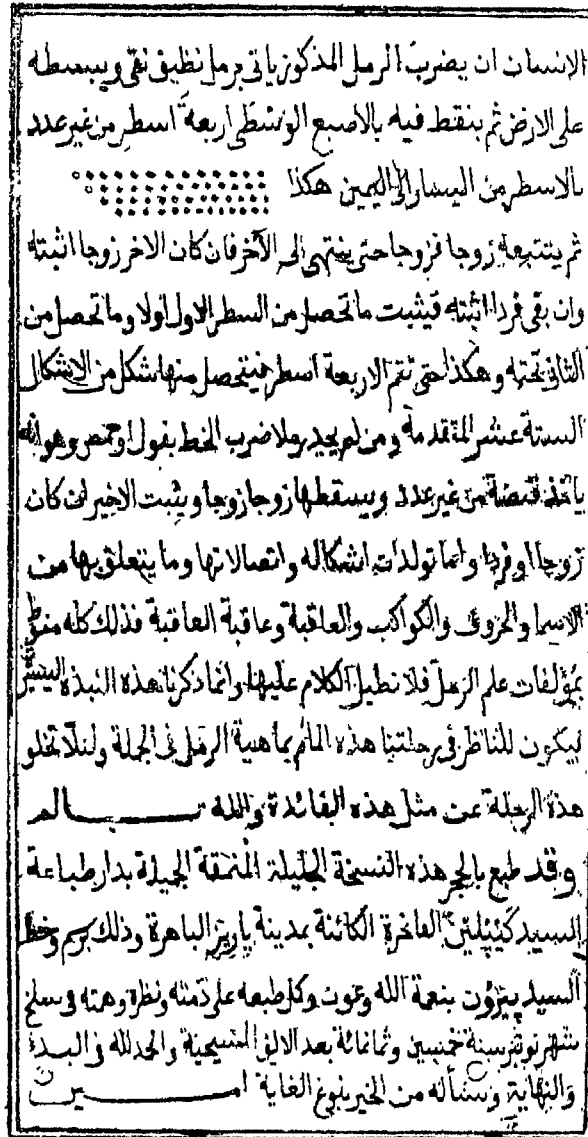 الانسان ان يضرب الرمل المذكور ياتى برمل نظيف نقى ويبسطه
على الارض ثم ينقط فيه بالاصبع الوسطى اربعة اسطر من غير عدد
بالاسطر من اليسار الى اليمين هكذا
ثم يتتبعه زوجا فزوجا حتى ينتهى الى الآخر فان كان الاخر زوجا اثبته
وان بقى فردا اثبته فيثبت ما تحصل من السطر الاول اولا وما تحصل من
الثانى تحته وهكذا حتى تتم الاربعة اسطر فيتحصل منها شكل من الاشكال
الستة عشر المتقدمة ومن لم يجد رملا ضرب الخط بفول او حمص وهو انه
ياخذ قبضة من غير عدد ويسقطها زوجا زوجا ويثبت الاخير ان كان
زوجا او فردا واما تولدات اشكاله واتصالاتها وما يتعلق بها من
الاسما والحروف والكواكب والعاقبة وعاقبة العاقبة فذلك كله منوط
بمؤلفات علم الرمل فلا نطيل الكلام عليها وانما ذكرنا هذه النبذة اليسيرة
ليكون للناظر فى رحلتنا هذه المام بماهية الرمل فى الجملة ولئلا تخلو
هذه الرحلة عن مثل هذه الفائدة والله
وقد طبع بالحجر هذه النسخة الجليلة المنمقة الجميلة بدار طباعة
السيد كيپلين الفاخرة الكائنة بمدينة پاريز الباهرة وذلك برسم وخط
السيد پيرون بنعمة الله وعون وكمل طبعه على ذمته ونظره وهمته فى سلخ
شهر نوڤنبر سنة خمسين وثمانمائة بعد الالف المسيحية والحمد لله فى البدء
والنهاية ونسأله من الخير بلوغ الغاية امـــــين